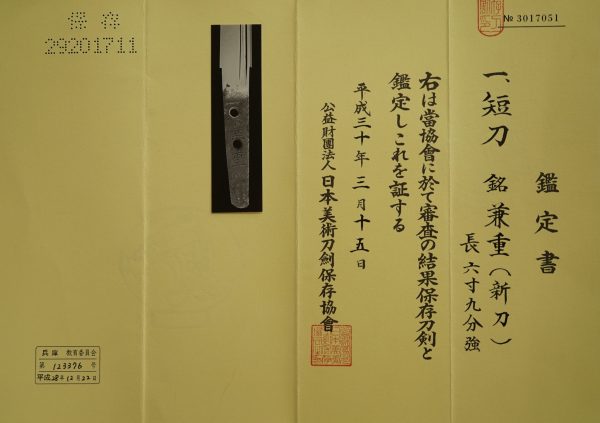 № 3017051
鑑定書
一、短刀 銘 兼重(新刀)
長 六寸九分強
右は當協會に於て審査の結果保存刀剣と
鑑定しこれを証する
平成三十年三月十五日
公益財團法人 日本美術刀劍保存協會
保存
29201711
兵庫 教育委員会
第 123376 号
平成28年12月22日